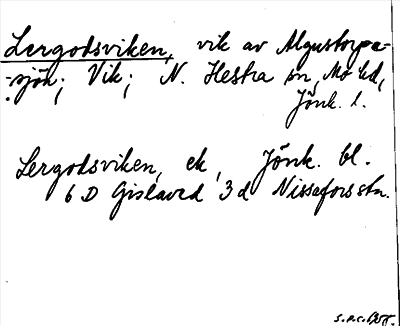 Lergodsviken, vik av Algustorpa-
sjön; Vik; N. Hestra sn, Mo hd,
Jönk. l.
Lergodsviken, ek, Jönk. bl.
6 D Gislaved 3 d Nissafors stn.